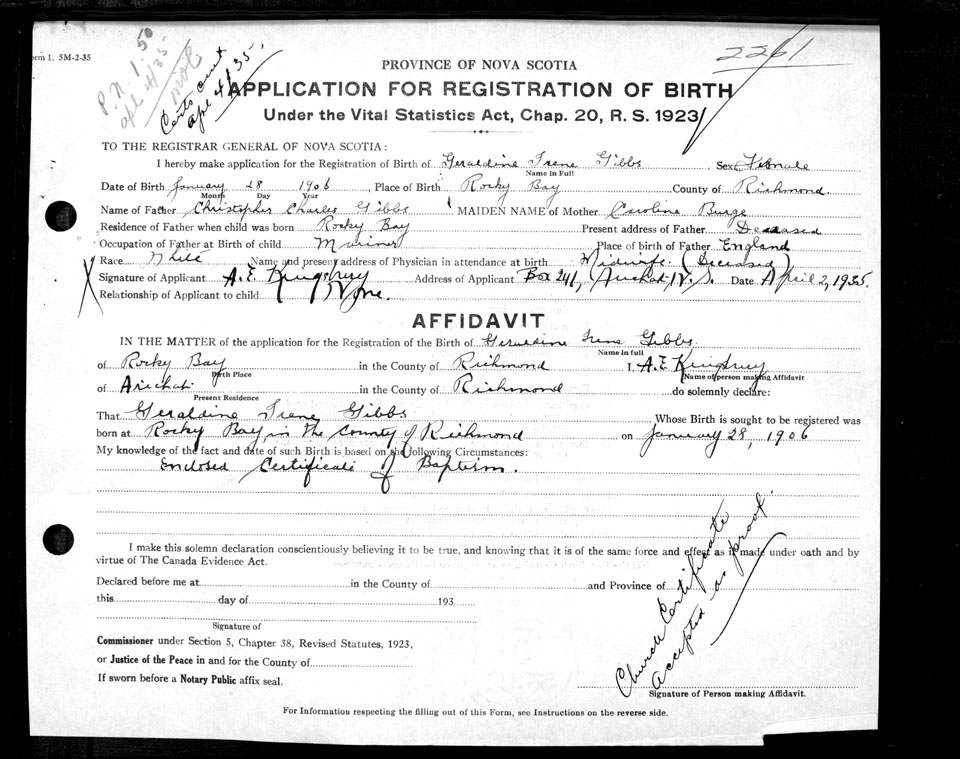 Form 1. 5M-2-35
P.N. 1.50
apl 4/35
Certs out
apl 4/35.
2261
PROVINCE OF NOVA SCOTIA
APPLICATION FOR REGISTRATION OF BIRTH
Under the Vital Statistics Act, Chap. 20, R. S. 1923
TO THE REGISTRAR GENERAL OF NOVA SCOTIA:
I hereby make application for the Registration of Birth of Geraldine Irene Gibbs Sex Female
Name in Full
Date of Birth January 28 1906 Place of Birth Rocky Bay County of Richmond.
Month Day Year
Name of Father Christopher Charles Gibbs MAIDEN NAME of Mother Caroline Burge
Residence of Father when child was born Rocky Bay Present address of Father Deceased
Occupation of Father at Birth of child Mariner Place of birth of Father England
Race White Name and present address of Physician in attendance at birth Midwife. (Deceased)
Signature of Applicant A. E. Address of Applicant Box 241, Arichat, N. S. Date April 2, 1935.
Relationship of Applicant to child None.
AFFIDAVIT
IN THE MATTER of the application for the Registration of the Birth of Geraldine Irene Gibbs
Name in full
of Rocky Bay in the County of Richmond I, A. E.
Birth Place Name of person making Affidavit
of Arichat in the County of Richmond do solemnly declare:
Present Residence
That Geraldine Irene Gibbs Whose Birth is sought to be registered was
born at Rocky Bay, in the County of Richmond on January 28, 1906
My knowledge of the fact and date of such Birth is based on the following Circumstances:
Enclosed Certificate of Baptism.
I make this solemn declaration conscientiously believing it to be true, and knowing that it is of the same force and effect as if made under oath and by
virtue of The Canada Evidence Act.
Declared before me at in the County of and Province of
this day of 193
Signature of
Commissioner under Section 5, Chapter 38, Revised Statutes, 1923,
or Justice of the Peace in and for the County of
If sworn before a Notary Public affix seal.
Church Certificate
accepted as proof.
Signature of Person making Affidavit.
For Information respecting the filling out of this Form, see Instructions on the reverse side.